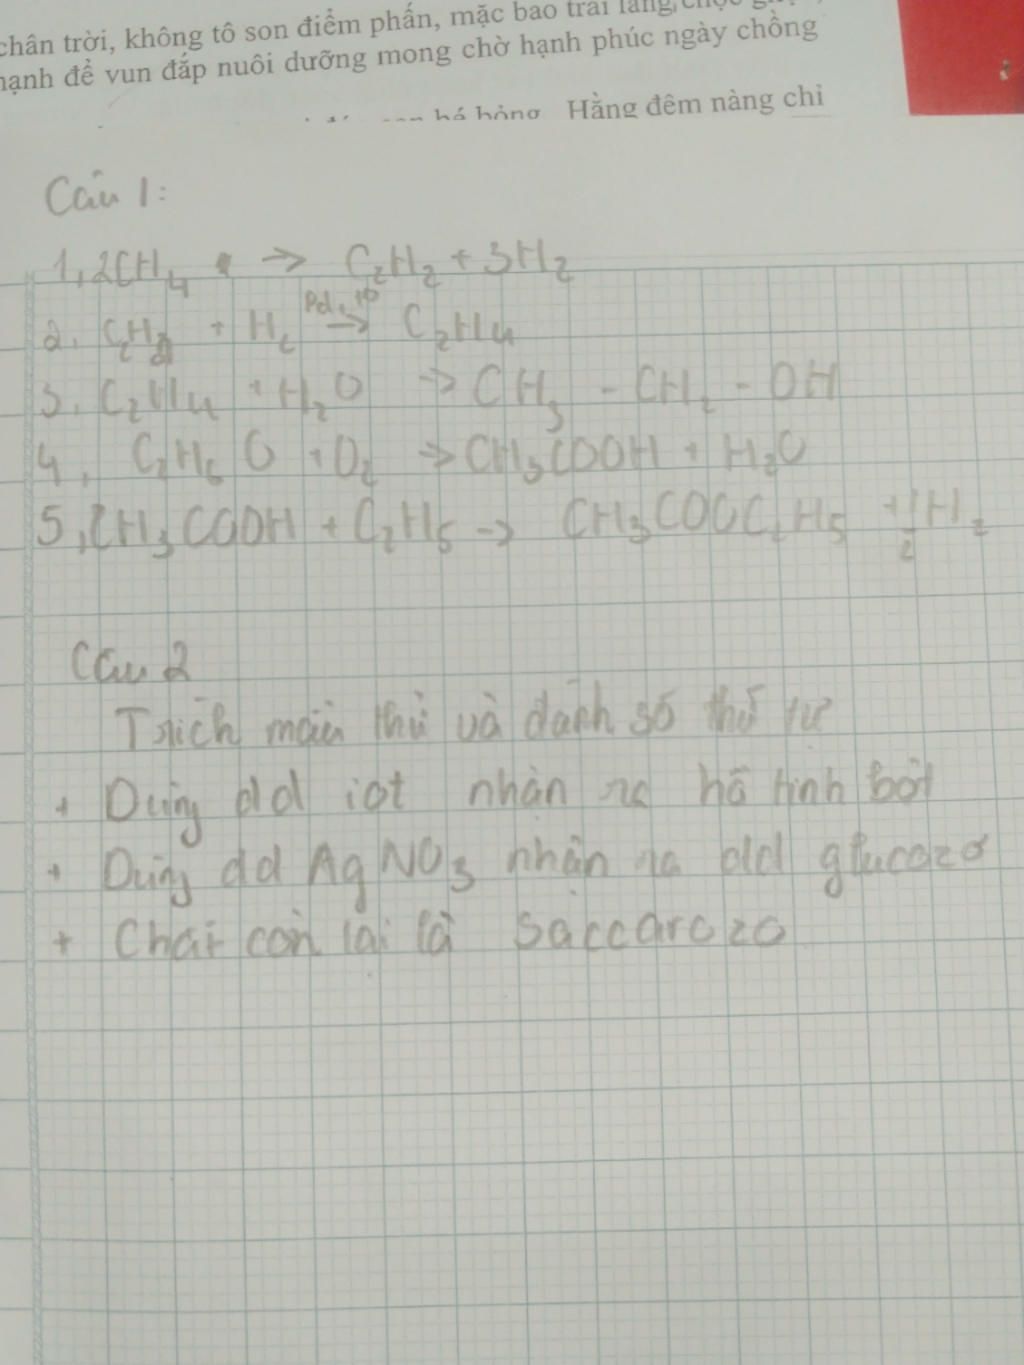 chân trời, không tô son điểm phấn, mặc bao trai làng
hạnh để vun đắp nuôi dưỡng mong chờ hạnh phúc ngày chồng
bé bỏng Hằng đêm nàng chỉ
Câu 1:
1, 2CH4 → C2H2 + 3H2
Pd, t°
2. C2H2 + H2 → C2H4
3. C2H4 + H2O → CH3 - CH2 - OH
4, C2H6O + O2 → CH3COOH + H2O
5, CH3COOH + C2H5 → CH3COOC2H5 + 1/2 H2
Câu 2
Trích mẫu thử và đánh số thứ tự
+ Dùng dd iot nhận ra hồ tinh bột
+ Dùng dd AgNO3 nhận ra dd glucozơ
+ Chai còn lại là saccarozo